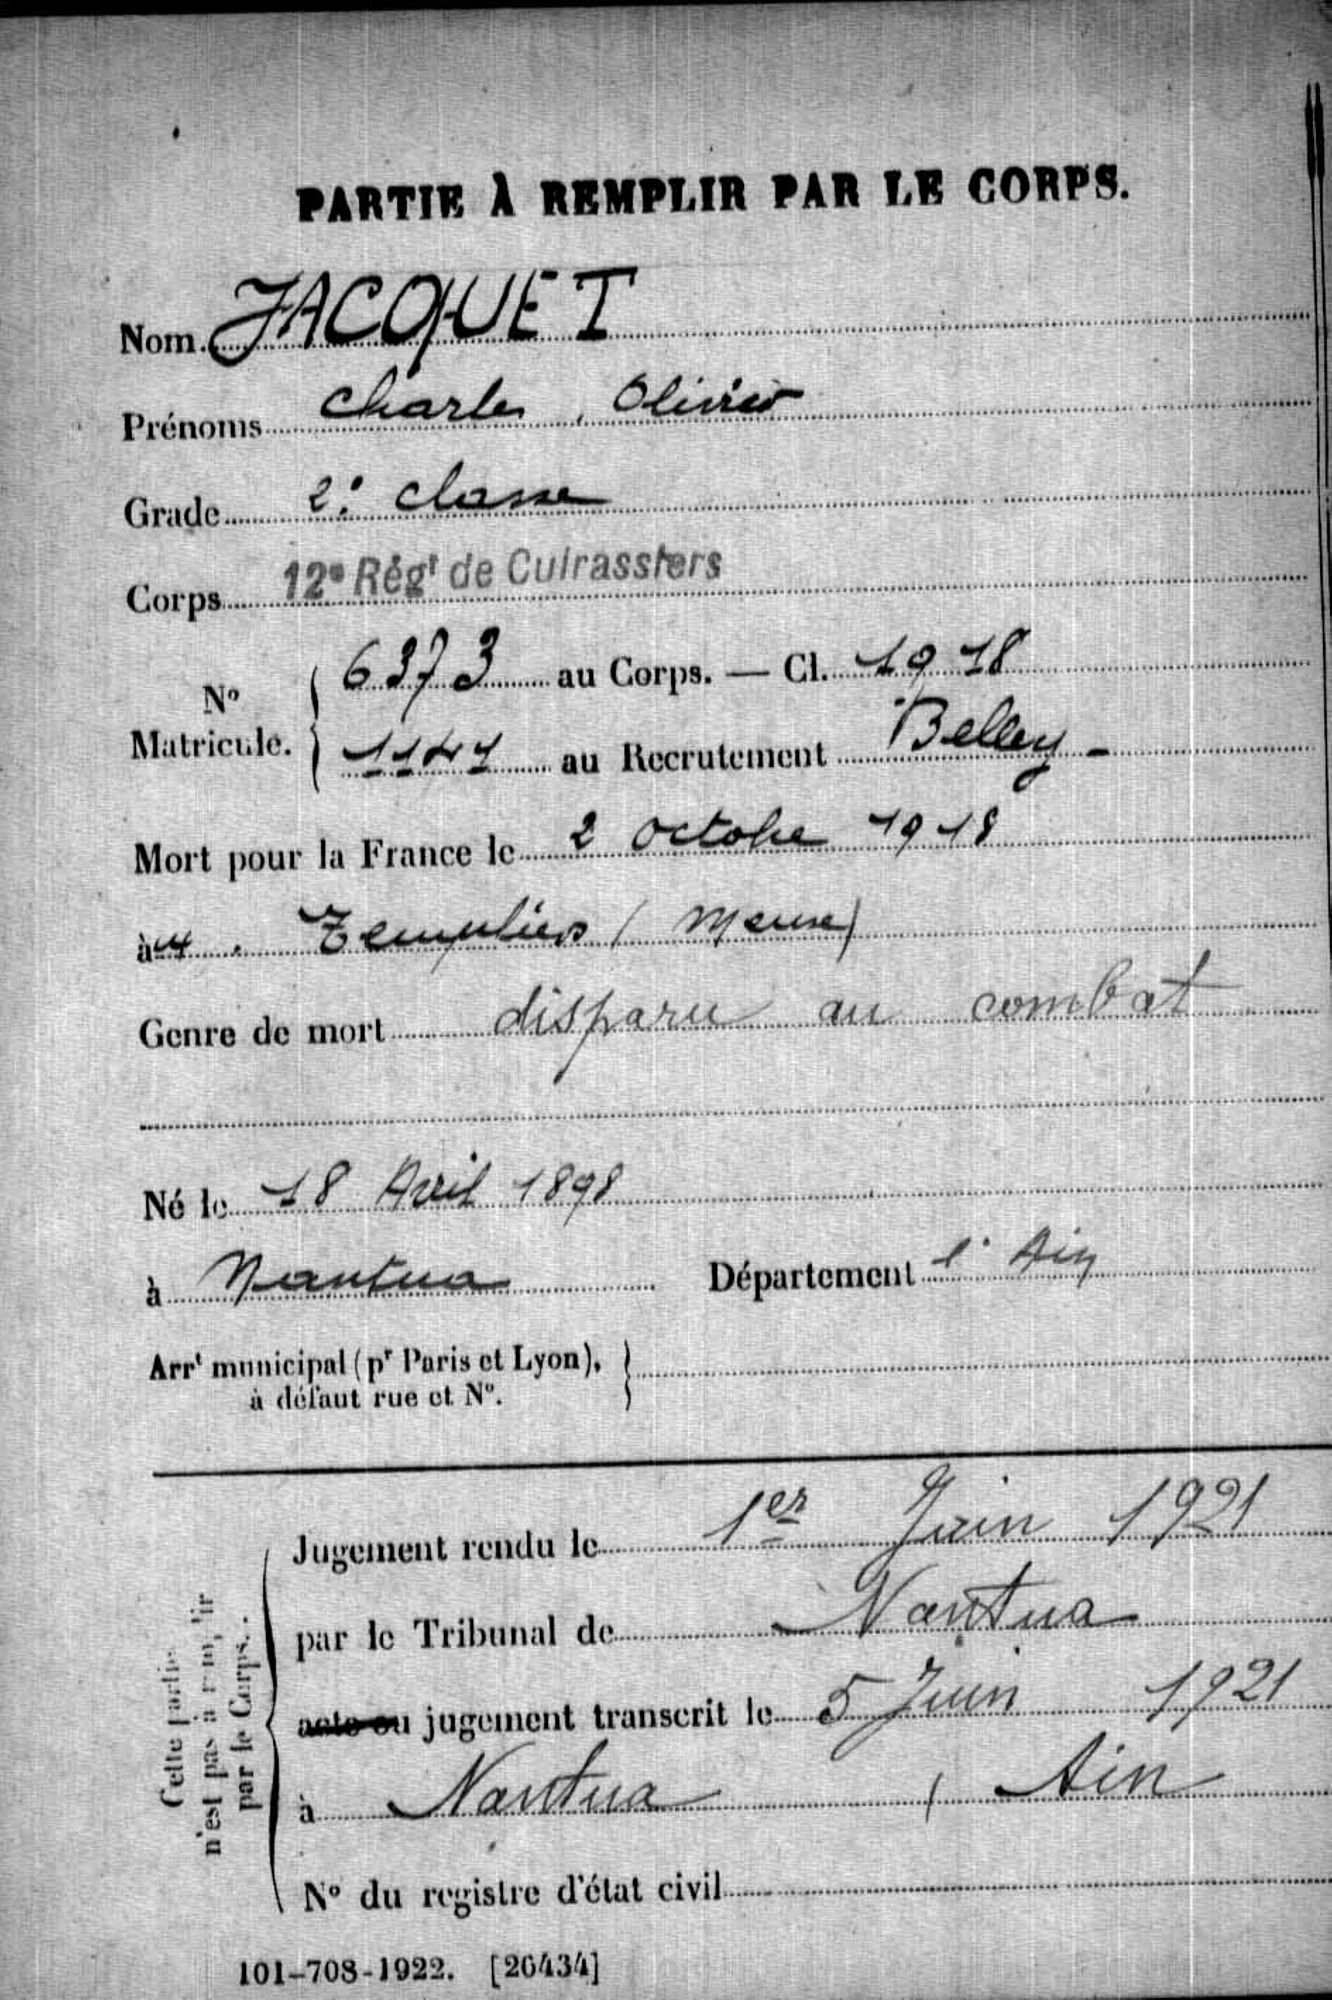 PARTIE À REMPLIR PAR LE CORPS.
Nom JACQUET
Prénoms Charles, Olivier
Grade 2e classe
Corps 12e Régt de Cuirassiers
No Matricule. { 6373 au Corps. — Cl. 1918
1141 au Recrutement Belley -
Mort pour la France le 2 octobre 1918
à Templiers (Meuse)
Genre de mort disparu au combat
Né le 18 Avril 1898
à Nantua Département l'Ain
Arrt municipal (pr Paris et Lyon), }
à défaut rue et No.
Cette partie n'est pas à remplir par le Corps.
Jugement rendu le 1er Juin 1921
par le Tribunal de Nantua
acte ou jugement transcrit le 5 Juin 1921
à Nantua, Ain
No du registre d'état civil
101-708-1922. [26434]